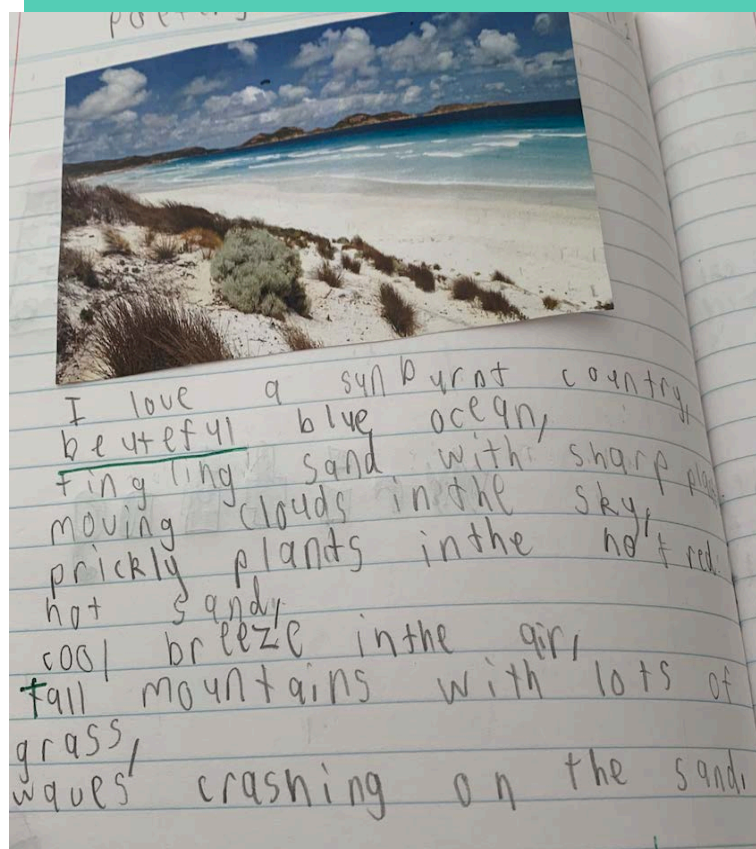 Poetry
I love a sunburnt country,
beuteful blue ocean,
tingling sand with sharp
moving clouds in the sky,
prickly plants in the hot red
hot sand,
cool breeze in the air,
tall mountains with lots of
grass,
waves crashing on the sand.